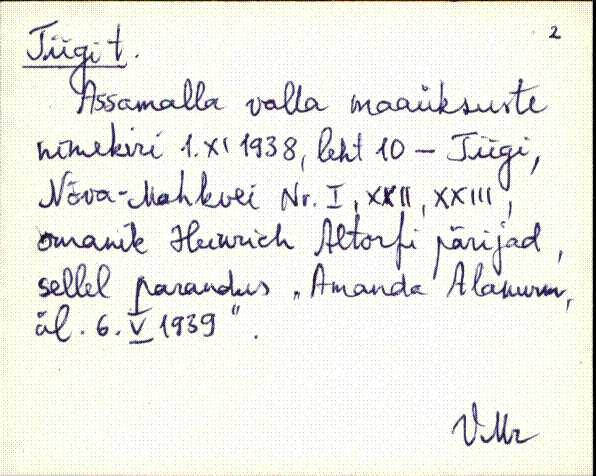 2
Tiigi t.
Assamalla valla maaüksuste
nimekiri 1. XI 1938, leht 10 – Tiigi,
Nõva-Mahkvei Nr. I, XXII, XXIII,
omanik Heinrich Altorfi pärijad,
sellel parandus "Amanda Alanurm,
äl. 6. V 1939".
VMr